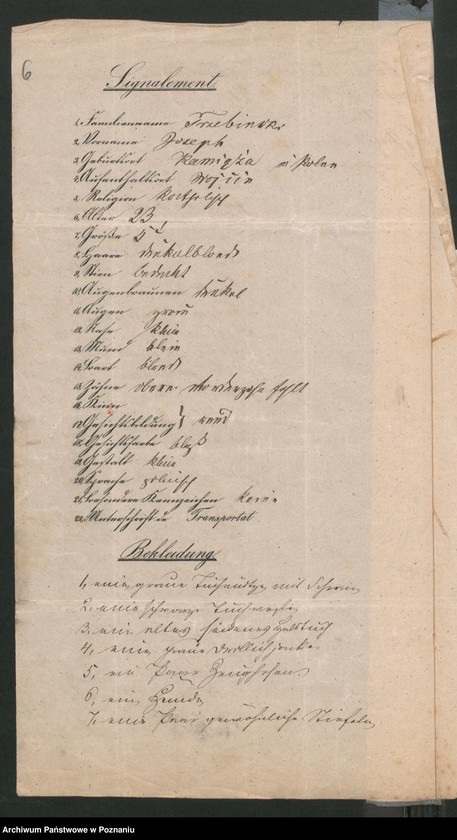 6
Signalement
1. Familienname Trzebinski
2. Vorname Joseph
3. Geburtsort Kamięża in Polen
4. Aufenthaltsort Wojcin
5. Religion katholisch
6. Alter 23
7. Größe 5'
8. Haare dunkelblond
9. Stirn bedeckt
10. Augenbraunen dunkel
11. Augen grau
12. Nase klein
13. Mund klein
14. Bart blond
15. Zähne obere Vorderzahn fehlt
16. Kinn
17. Gesichtsbildung } rund
18. Gesichtsfarbe blaß
19. Gestalt klein
20. Sprache polnisch
21. besondere Kennzeichen keine
22. Unterschrift des Transportat
Bekleidung
1, eine graue Tuchmütze mit Schirm
2, eine schwarze Tuchweste
3, ein altes seidenes Halstuch
4, eine graue Drillichjacke
5, ein Paar Zeughosen
6, ein Hemde
7, ein Paar gewöhnliche Stiefeln
Archiwum Państwowe w Poznaniu